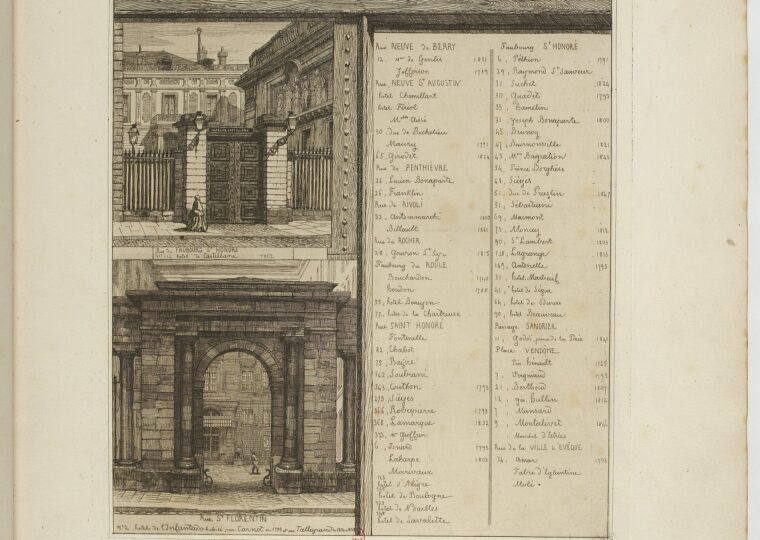 Rue du FAUBOURG St HONORÉ
No 112 hotel de Castellane 1862
Rue St FLORENTIN
No 2 hotel de l'Infantado habité par Carnot en 1793 et
Rue NEUVE de BERRY
12, Mme de Genlis 1831
Jefferson 1789
Rue NEUVE St AUGUSTIN
hotel Chamillart
hotel Fériol
Mlle Aïssé
30 Duc de Richelieu
Maury 1791
65, Girodet 1824
Rue de PENTHIÈVRE
26, Lucien Bonaparte
26, Franklin
Rue de RIVOLI
32, Antommarchi
Billault
Rue du ROCHER
28, Gouvion St Cyr 1815
Faubourg du ROULE
Bouchardon
houdon
hotel Beaujon
hotel de la Chartreuse
Rue SAINT HONORÉ
Fontenelle
82, Chabot
75, Bazire
342, Soubrani
343, Couthon 1793
Sièyes
366, Robespierre 1793
368, Lamarque 1832
373, Mme Geoffrin
6, 1793
Laharpe 1803
Marivaux
hotel d'Aligre
hotel de Boulogne
hotel de Noailles
hotel de Savalette
Faubourg St HONORÉ
6, Péthion 1791
29, Raymond St Sauveur
31, Suchet 1824
30, Guadet 1793
33, hamelin
31, Joseph Bonaparte 1800
45, Brunoy
47, Burnonville 1821
43, Mme Bagration 1845
54, Prince Borghèse
48, Sièyes
51, duc de Praslin 1847
51, Sébastiani
69, Marmont
73, Moncey 1812
90, St Lambert 1803
118, Lagrange 1813
169, Antonelle 1793
31, hotel Marbeuf
41, hotel de Ségur
hotel de Duras
90, hotel Beauveau
Passage SANDRIER
11, Godoï, prince de la Paix
Place VENDOME
Pdt hénault
7, Vergniaud 1793
21, Berthond
12, gén. hullin
7, Mansard
9, Montalivet
Marechal d'Estrées
Rue de la VILLE L'EVÊQUE
Amar 1793
Fabre d'Eglantine
Molé.